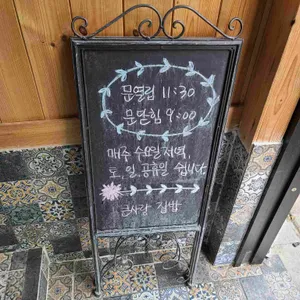 문열림 11:30
문닫힘 9:00
매주 수요일저녁,
토,일,공휴일 쉽니다
큰사랑 집밥